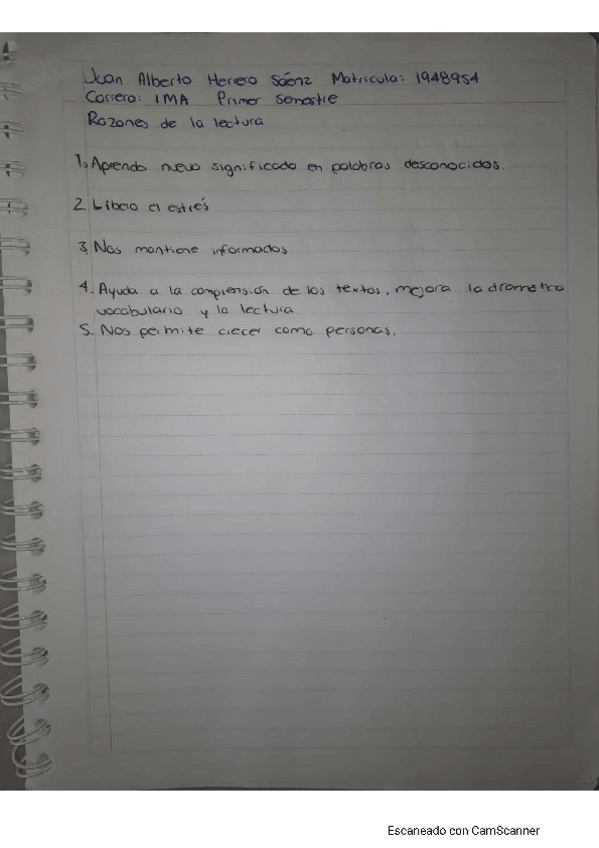 Juan Alberto Herrero Sáenz Matricula: 1948954
Carrera: IMA Primer Semestre
Razones de la lectura
1. Aprendo nuevo significado en palabras desconocidas.
2. Libero el estrés
3. Nos mantiene informados
4. Ayuda a la comprensión de los textos, mejora la
vocabulario y la lectura
5. Nos permite crecer como personas.
Escaneado con CamScanner